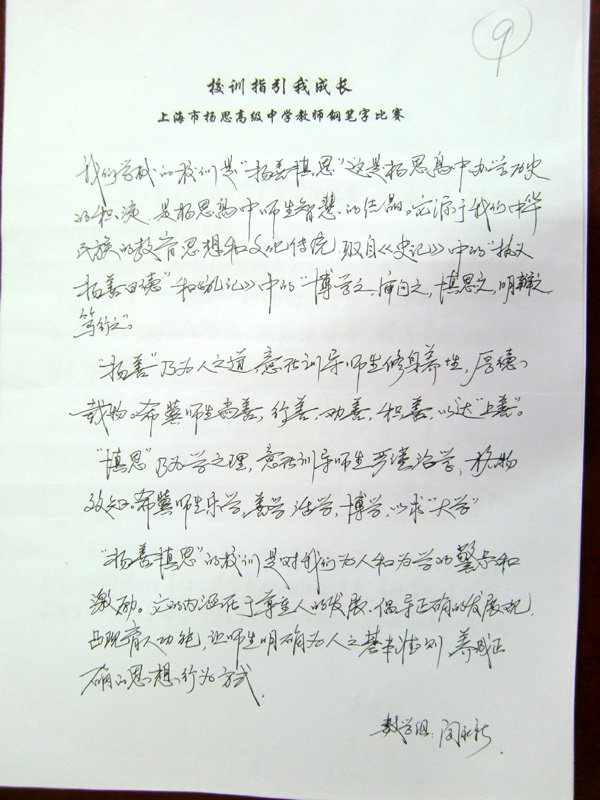 9
校训指引我成长
上海市杨思高级中学教师钢笔字比赛
我们学校的校训是"扬善慎思"这是杨思高中办学历史
的积淀,是杨思高中师生智慧的结晶。它源于我们中华
民族的教育思想和文化传统,取自《史记》中的"扬义
扬善曰德"和《礼记》中的"博学之,审问之,慎思之,明辨之
笃行之"。
"扬善"乃为人之道,意在训导师生修身养性,厚德、
载物。希冀师生尚善,行善,劝善,积善,以达"上善"。
"慎思"乃为学之理,意在训导师生严谨治学,格物
致知。希冀师生乐学,善学,活学,博学,以求"大学"
"扬善慎思"的校训是对我们为人和为学的警示和
激励。它的内涵在于尊重人的发展,倡导正确的发展观,
凸现育人功能,让师生明确为人之基本准则,养成正
确的思想、行为方式.
数学组:闵